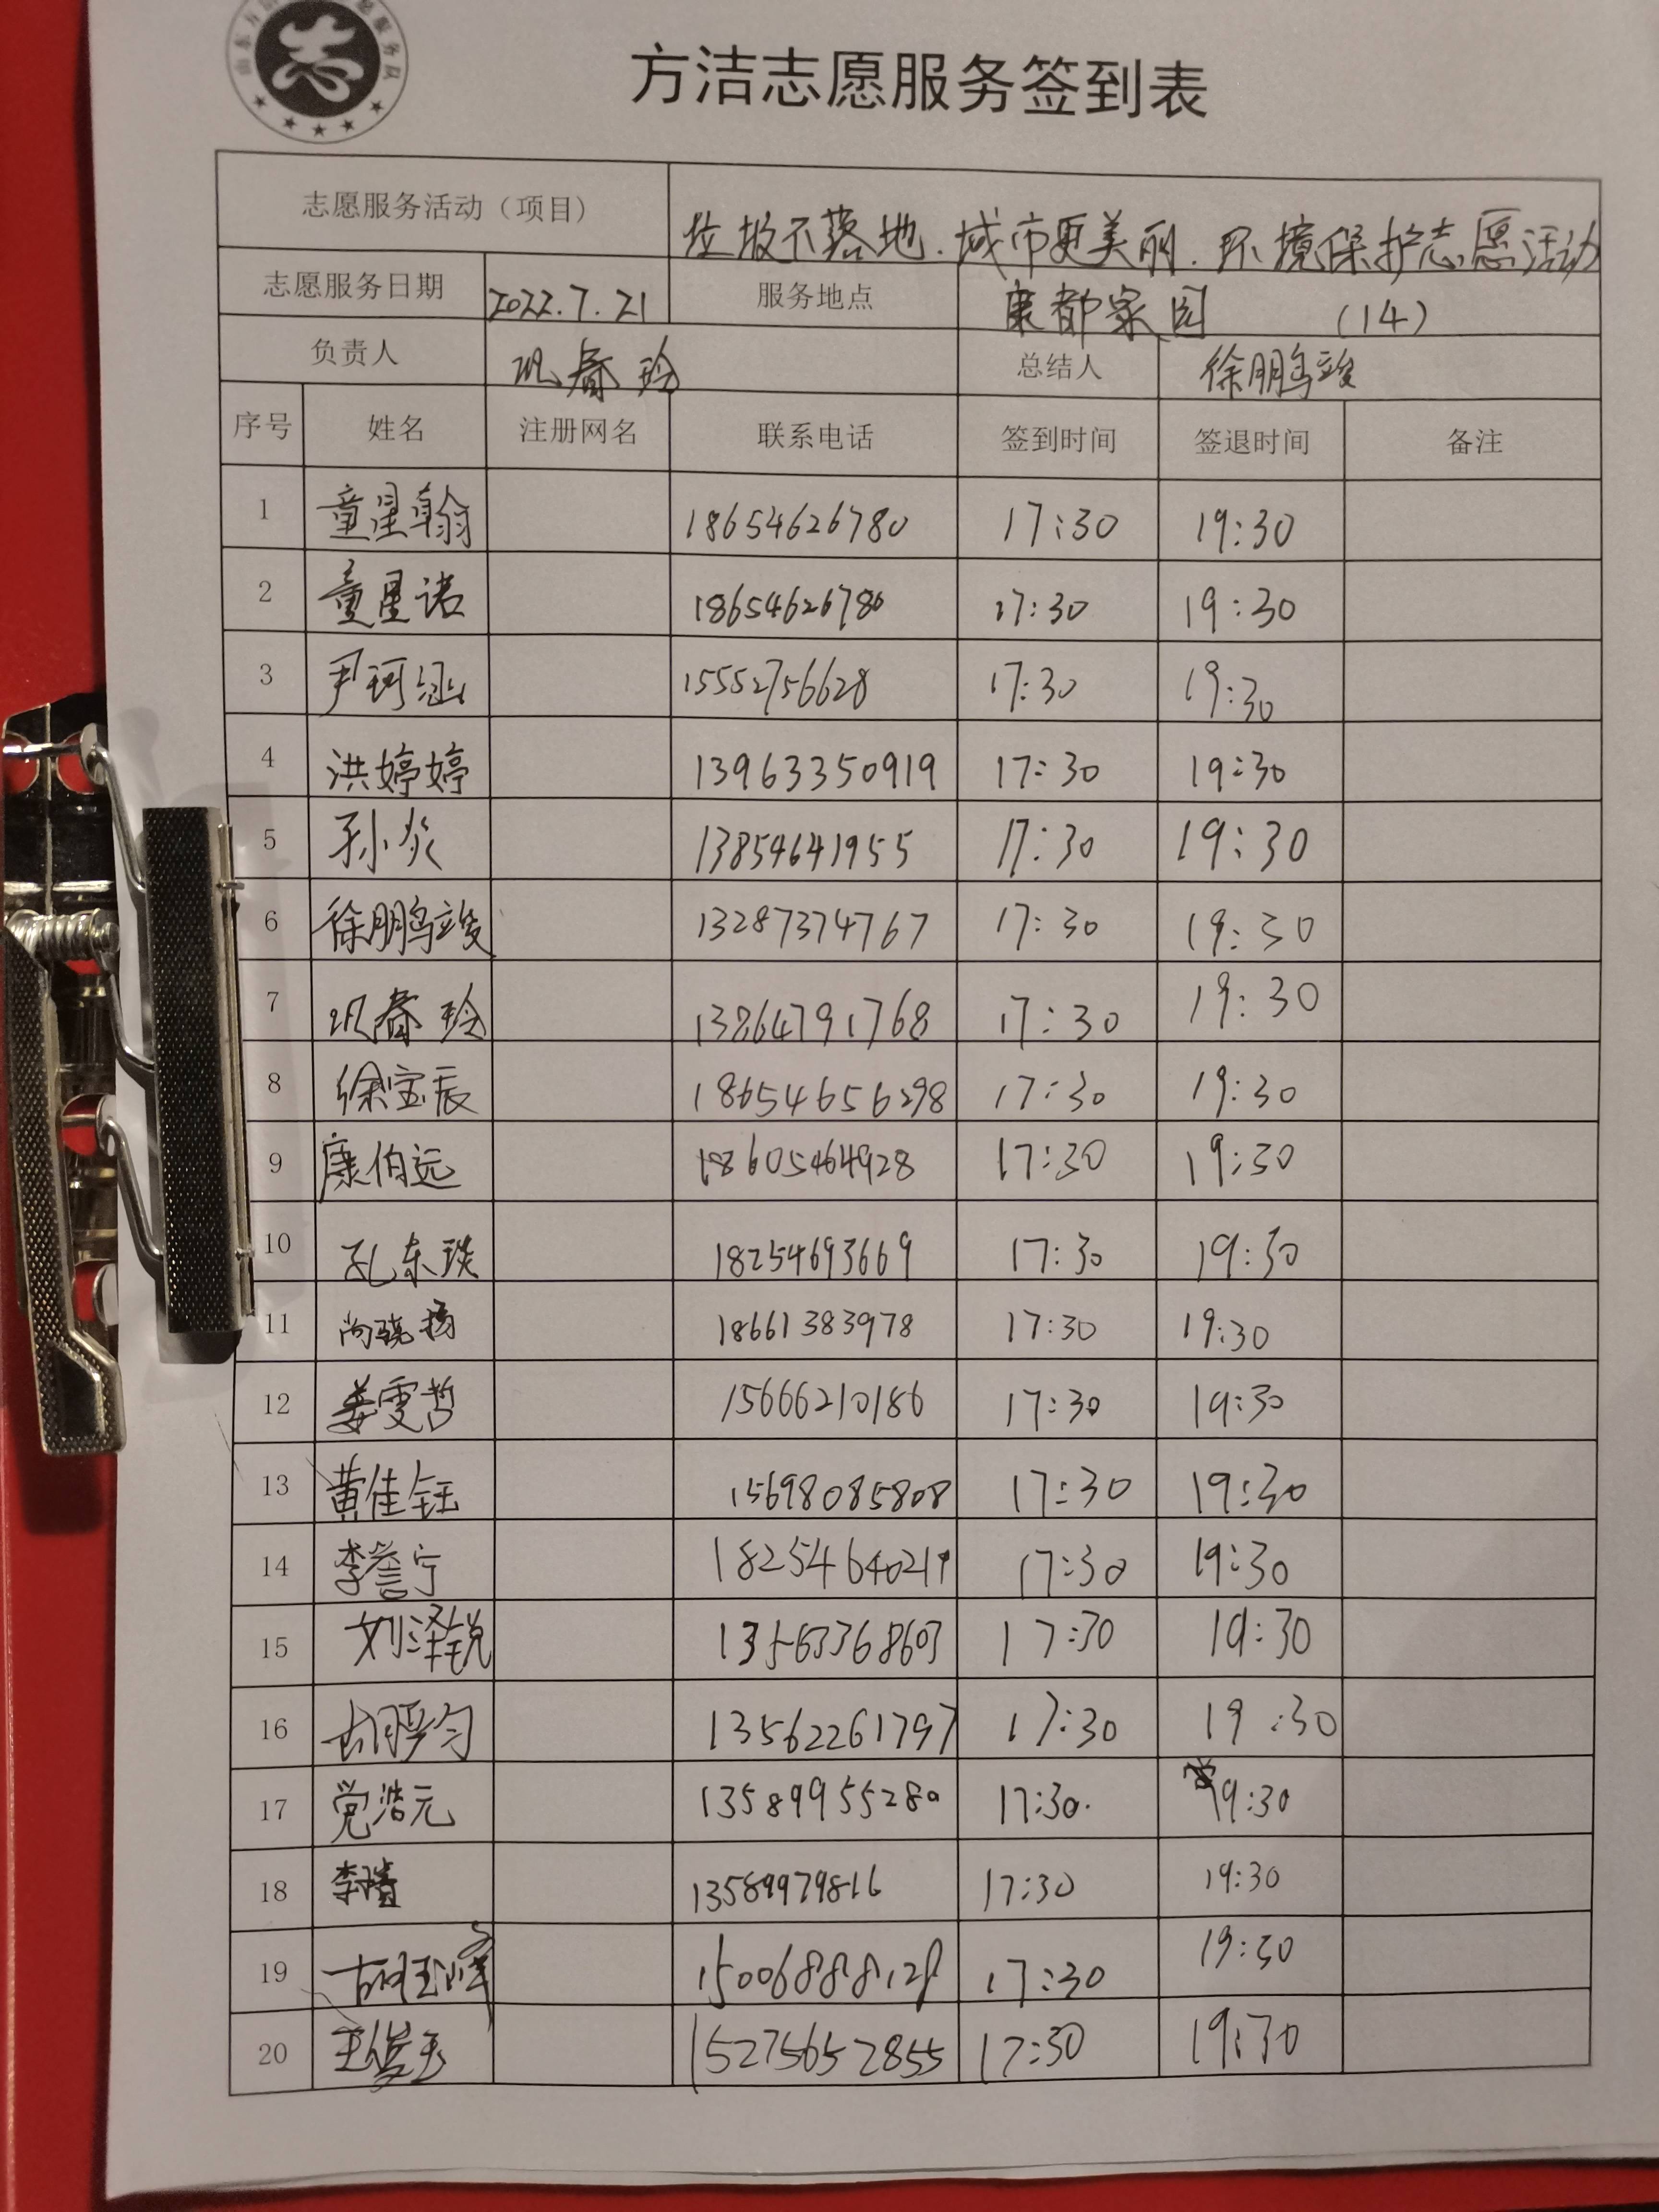 方洁志愿服务签到表
志愿服务活动（项目） 垃圾不落地.城市更美丽.环境保护志愿活动
志愿服务日期 2022.7.21 服务地点 康都家园 (14)
负责人 巩春玲 总结人 徐鹏竣
序号 姓名 注册网名 联系电话 签到时间 签退时间 备注
1 童星翰 18654626780 17:30 19:30
2 童星诺 18654626780 17:30 19:30
3 尹珂涵 15552756628 17:30 19:30
4 洪婷婷 13963350919 17:30 19:30
5 孙炎 13854641955 17:30 19:30
6 徐鹏竣 13287374767 17:30 19:30
7 巩春玲 13864791768 17:30 19:30
8 徐宝辰 18654656298 17:30 19:30
9 康伯远 18605464928 17:30 19:30
10 孔东琰 18254693669 17:30 19:30
11 尚晓扬 18661383978 17:30 19:30
12 姜雯哲 15666210186 17:30 19:30
13 黄佳钰 15698085808 17:30 19:30
14 李誉宁 18254640219 17:30 19:30
15 刘泽锐 13563368603 17:30 19:30
16 13562261797 17:30 19:30
17 党浩元 13589955280 17:30. 19:30
18 李 13589979816 17:30 19:30
19 胡玉峰 15006888128 17:30 19:30
20 王俊玉 15275652855 17:30 19:30